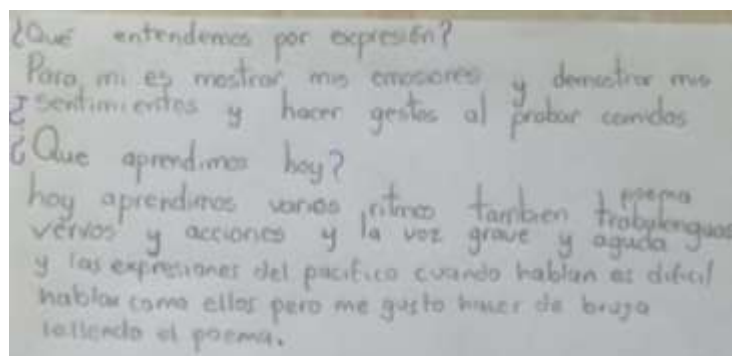 ¿Qué entendemos por expresión?
Para mi es mostrar mis emosiones y demostrar mis
sentimientos y hacer gestos al probar comidas
¿Que aprendimos hoy?
hoy aprendimos varios ritmos tambien poema trabulenguas
vervos y acciones y la voz grave y aguda
y las expresiones del pacifico cuando hablan es dificil
hablar como ellos pero me gusto hacer de bruja
el poema.